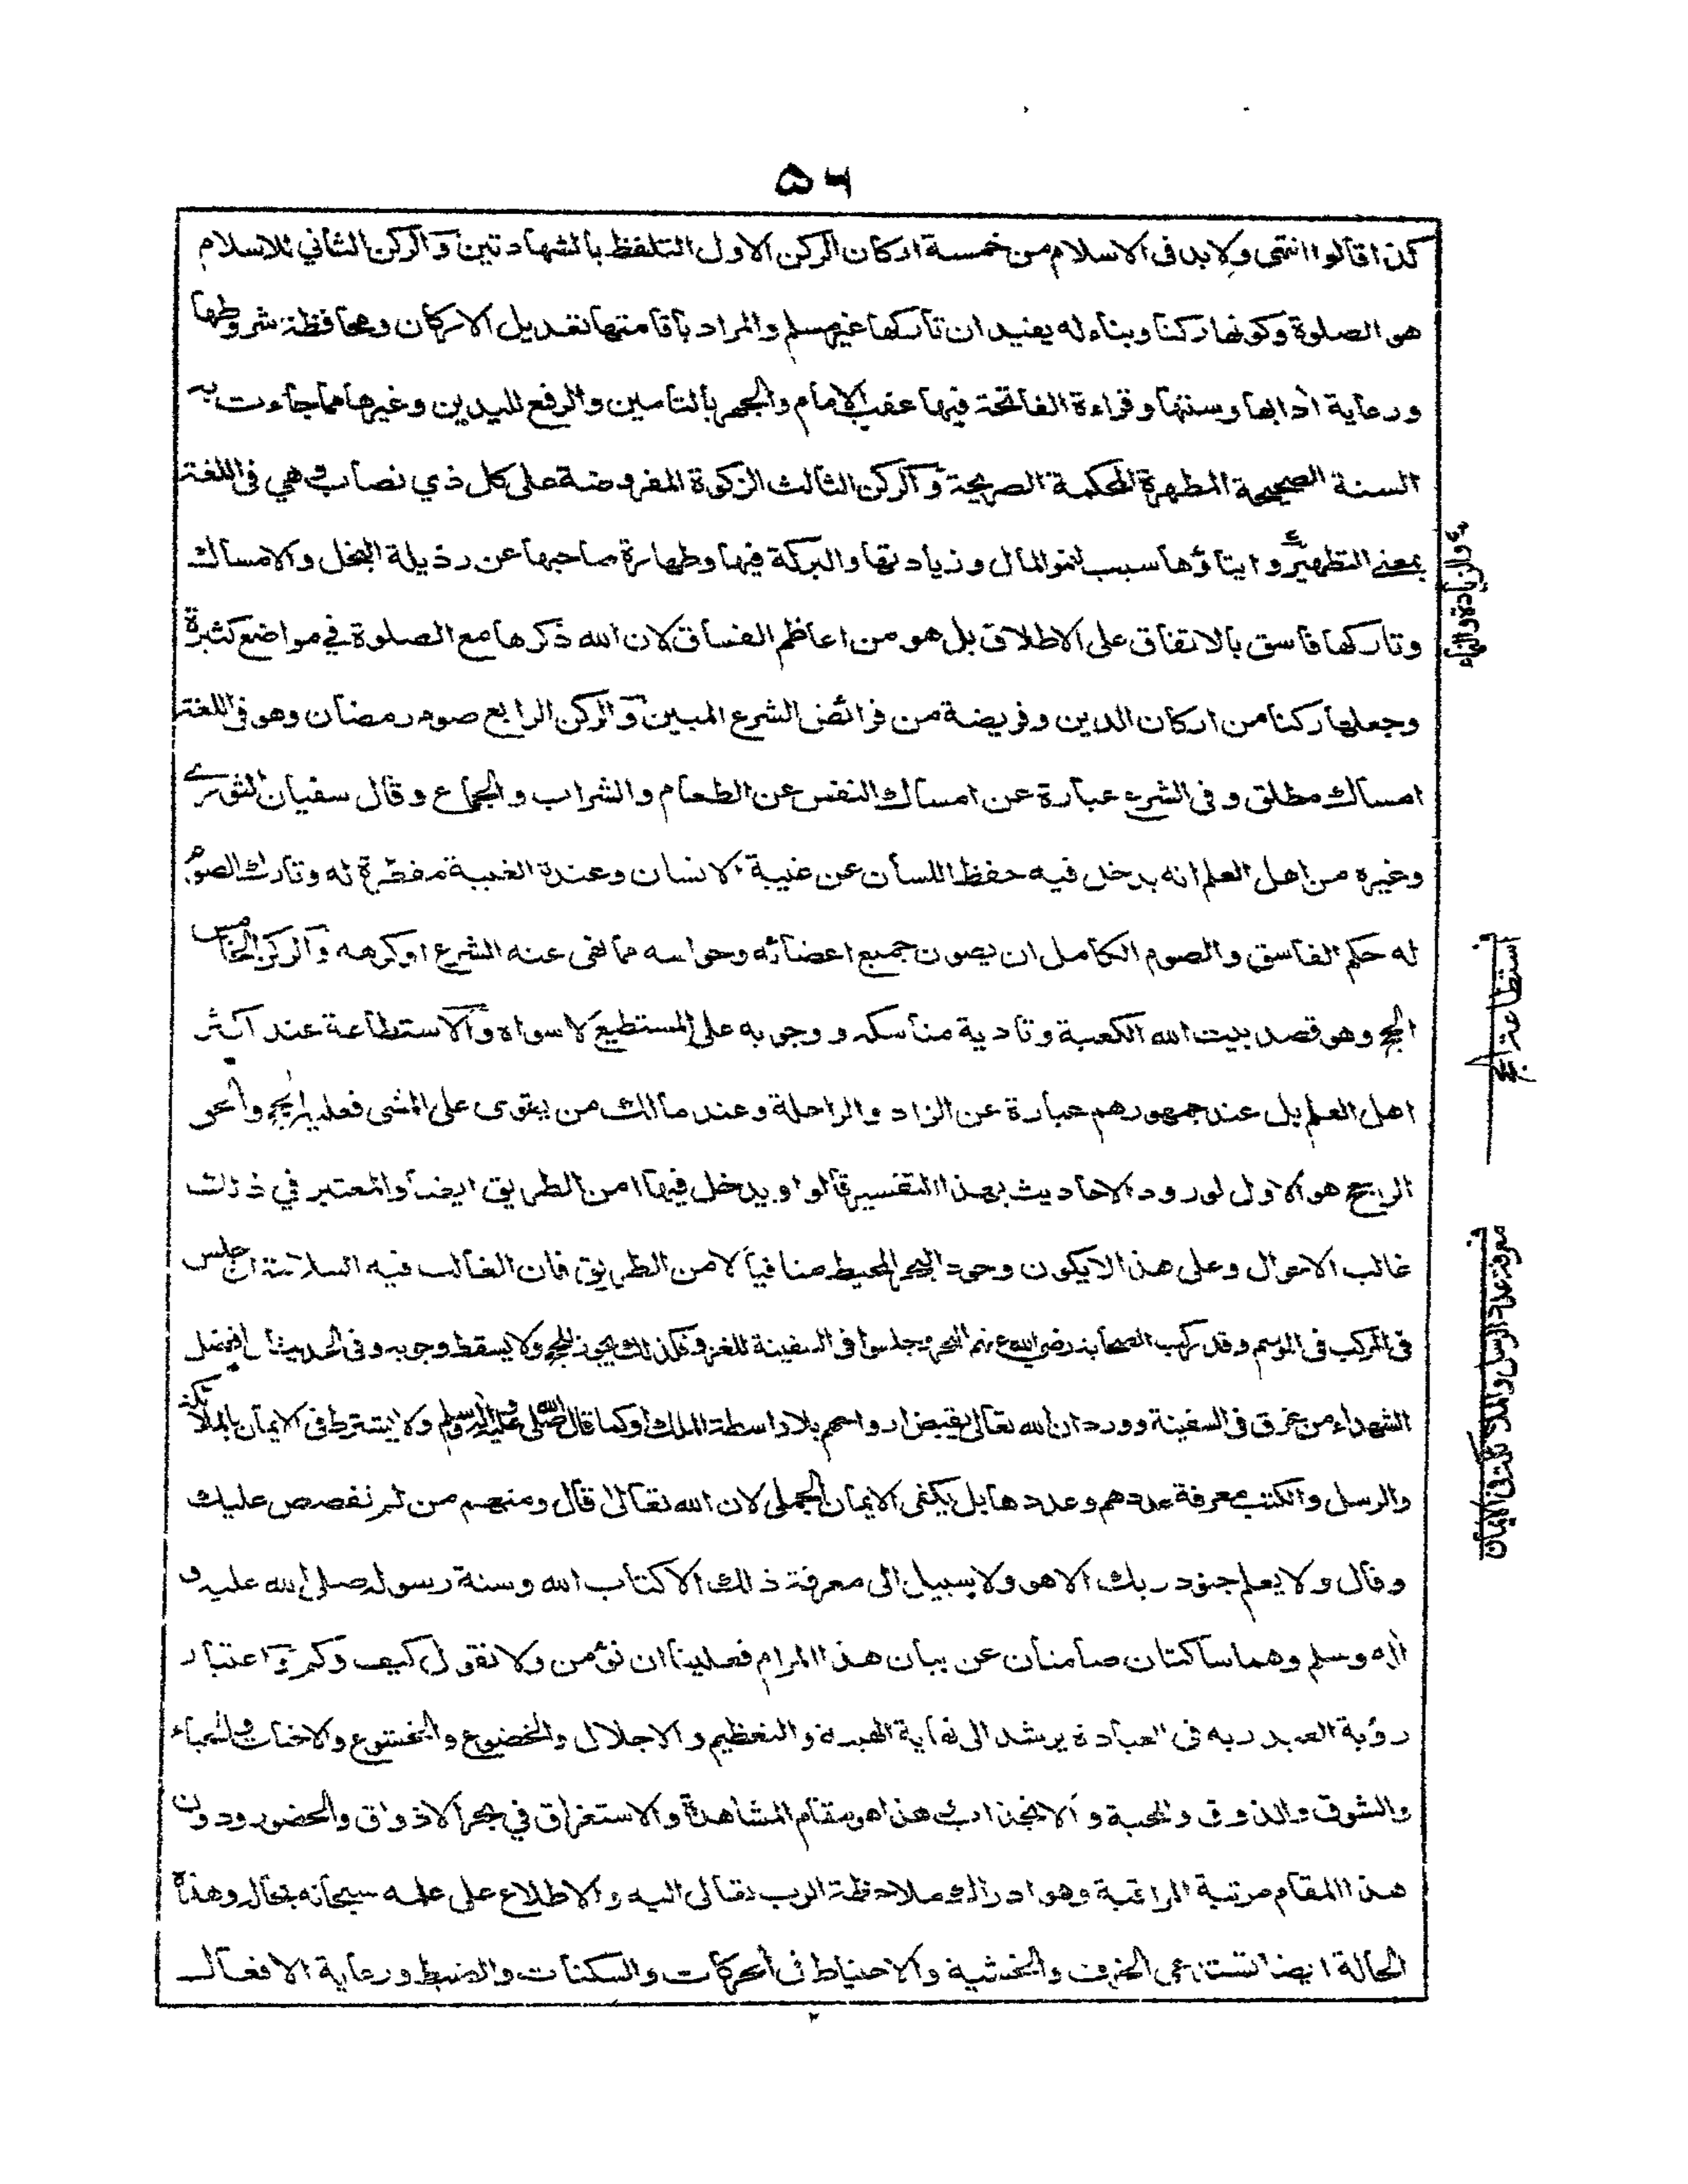 ۵۶
كذا قالوا انتهى ولابد فى الاسلام من خمسة اركان الركن الاول التلفظ بالشهادتين والركن الثاني للاسلام
هو الصلوة وكونها ركنا وبناء له يفيد ان تاركها غير مسلم والمراد باقامتها تعديل الاركان ومحافظة شروطها
ورعاية ادابها وسننها وقراءة الفاتحة فيها عقب الامام والجهر بالتامين والرفع لليدين وغيرها مما جاءت به
السنة الصحيحة المطهرة المحكمة الصريحة والركن الثالث الزكوة المفروضة على كل ذي نصاب وهي فى اللغة
بمعنى التطهير وايتاؤها سبب لنمو المال وزيادتها والبركة فيها وطهارة صاحبها عن رذيلة البخل والامساك
وتاركها فاسق بالاتفاق على الاطلاق بل هو من اعاظم الفساق لان الله ذكرها مع الصلوة في مواضع كثيرة
وجعلها ركنا من اركان الدين وفريضة من فرائض الشرع المبين والركن الرابع صوم رمضان وهو فى اللغة
امساك مطلق وفى الشرع عبارة عن امساك النفس عن الطعام والشراب والجماع وقال سفيان الثوري
وغيره من اهل العلم انه يدخل فيه حفظ اللسان عن غيبة الانسان وعنده الغيبة مفطرة له وتارك الصوم
له حكم الفاسق والصوم الكامل ان يصون جميع اعضائه وحواسه مما نهى عنه الشرع اوكرهه والركن الخامس
الحج وهو قصد بيت الله الكعبة وتادية مناسكه ووجوبه على المستطيع لا سواه والاستطاعة عند اكثر
اهل العلم بل عند جمهورهم عبارة عن الزاد والراحلة وعند مالك من يقوى على المشى فعليه الحج والحق
الراجح هو الاول لورود الاحاديث بهذا التفسير قالوا ويدخل فيها امن الطريق ايضا والمعتبر في ذلك
غالب الاحوال وعلى هذا لا يكون وجود البحر المحيط منافيا لامن الطريق فان الغالب فيه السلامة ان جلس
فى المركب فى الموسم وقد ركب الصحابة رضي الله عنهم البحر وجلسوا فى السفينة للغزو فكذلك يجوز للحج ولا يسقط وجوبه وفى الحديث افضل
الشهداء من غرق فى السفينة وورد ان الله تعالى يقبض ارواحهم بلا واسطة الملك او كما قال صلى الله عليه وآله وسلم ولا يشترط فى الايمان بالملائكة
والرسل والكتب معرفة عددهم وعددها بل يكفى الايمان الجملى لان الله تعالى قال ومنهم من لم نقصص عليك
وقال ولا يعلم جنود ربك الا هو ولا سبيل الى معرفة ذلك الا كتاب الله وسنة رسوله صلى الله عليه و
آله وسلم وهما ساكتان صامتان عن بيان هذا المرام فعلينا ان نؤمن ولا نقول كيف وكم واعتبار
رؤية العبد ربه فى العبادة يرشد الى نهاية الهيبة والتعظيم والاجلال والخضوع والخشوع والاخبات والحياء
والشوق والذوق والمحبة والانجذاب هذا هو مقام المشاهدة والاستغراق في بحر الاذواق والحضور ودون
هذا المقام مرتبة المراقبة وهو ادراك ملاحظة الرب تعالى اليه والاطلاع على علمه سبحانه بحاله وهذه
الحالة ايضا تستدعى الخوف والخشية والاحتياط فى الحركات والسكنات والضبط ورعاية الافعال
استطاعة الحج
معرفة عدد الرسل والملائكة والكتب فى الايمان